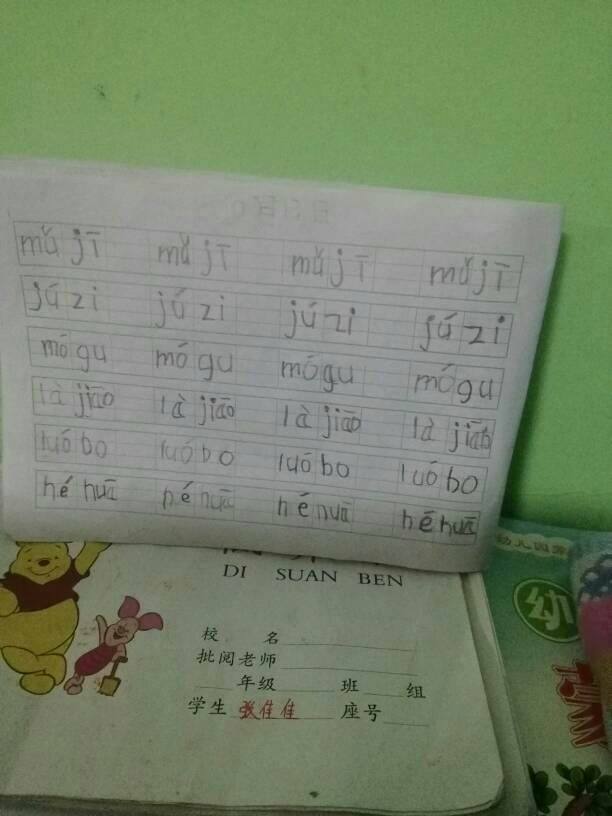 mǔ jī mǔ jī mǔ jī mǔ jī
jú zi jú zi jú zi jú zi
mó gu mó gu mó gu mó gu
là jiāo là jiāo là jiāo là jiāo
luó bo luó bo luó bo luó bo
hé huā hé huā hé huā hé huā
DI SUAN BEN
校 名
批阅老师
年级 班 组
学生 张佳佳 座号
幼儿园
幼